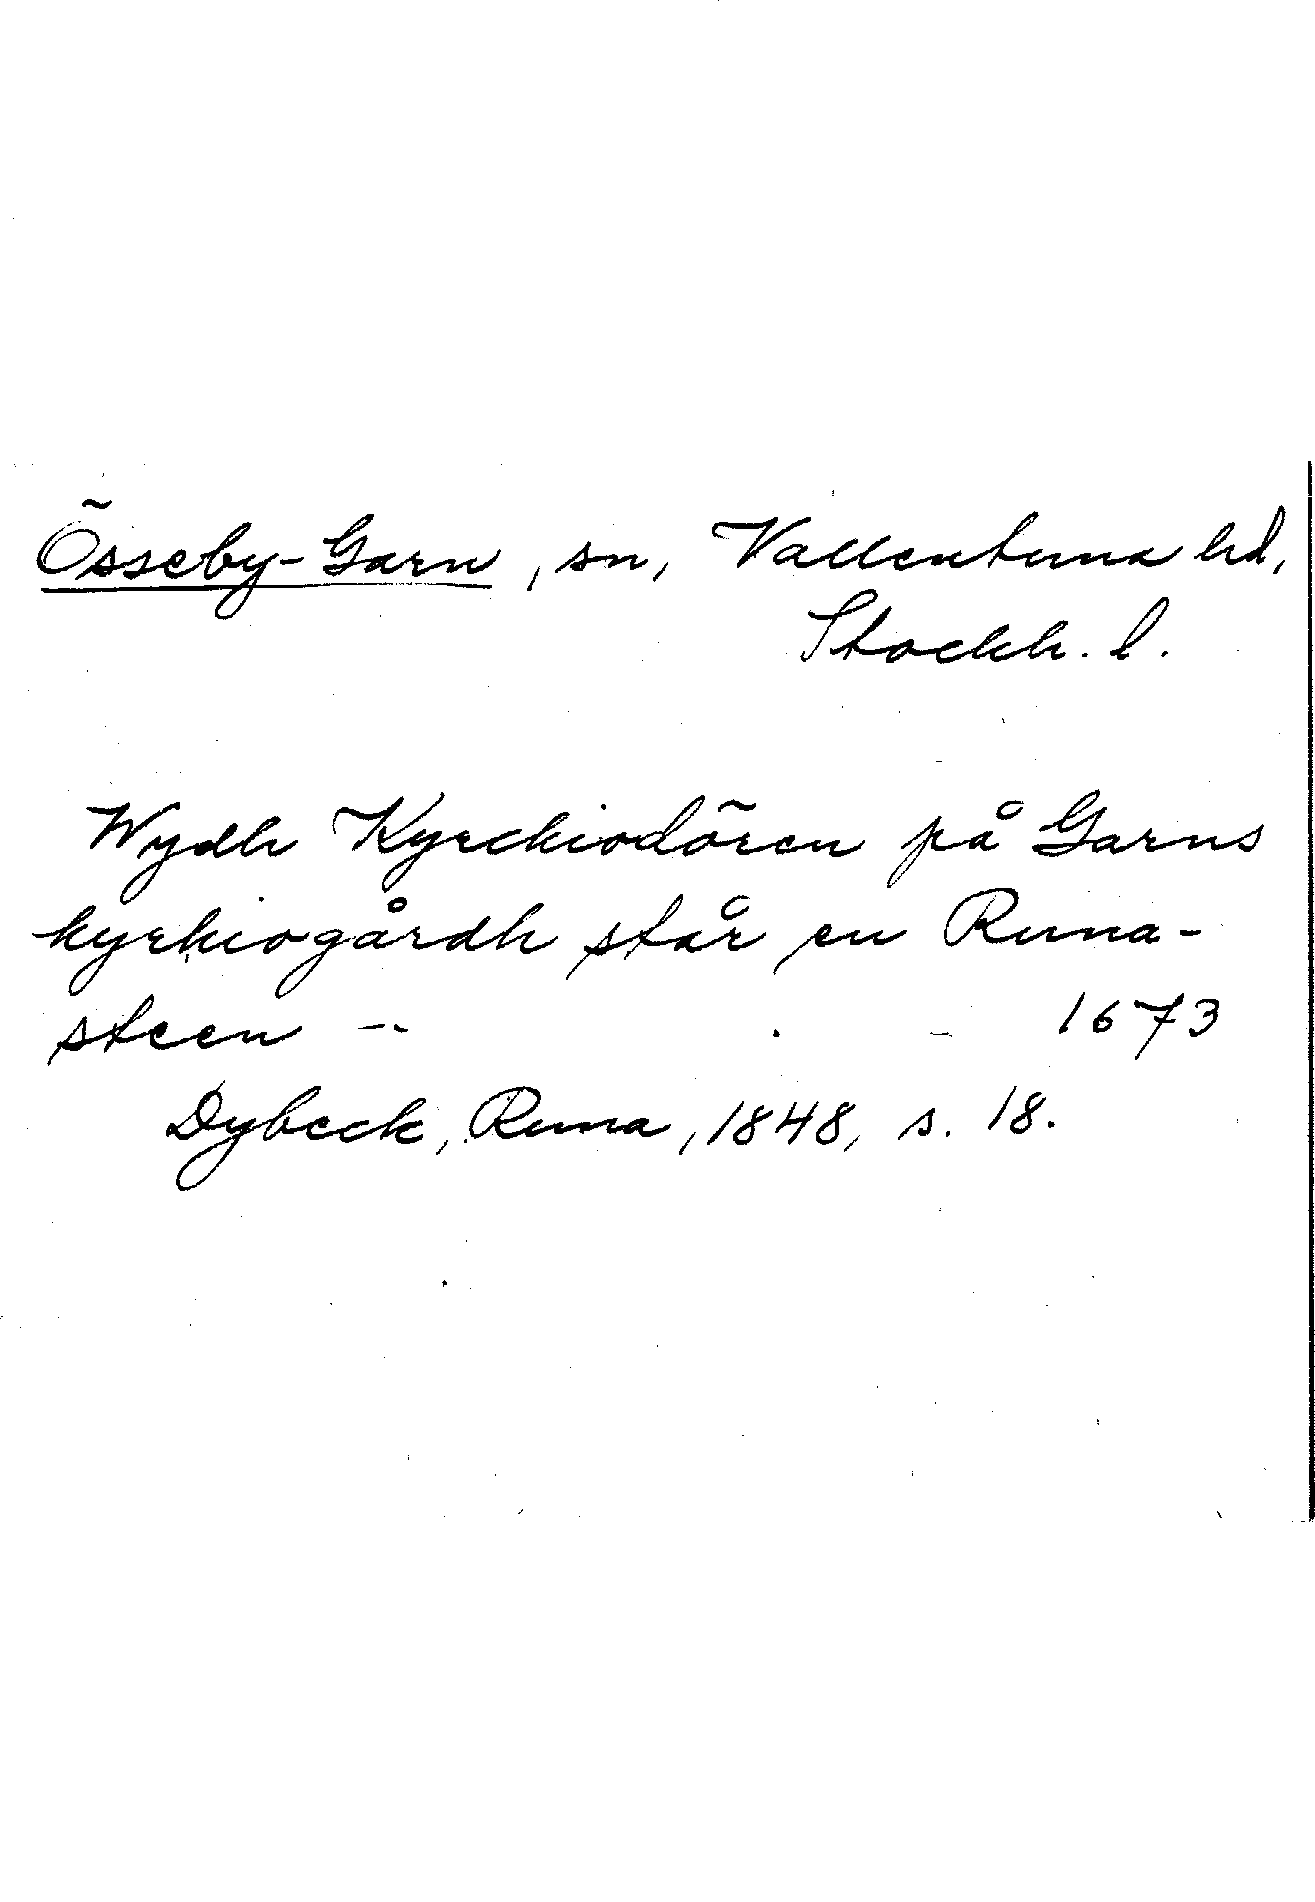 Össeby-Garn, sn, Vallentuna hd,
Stockh. l.
Wydh Kyrckiodören på Garns
kyrkiogårdh står en Runa-
steen -- - 1673
Dybeck, Runa, 1848, s. 18.